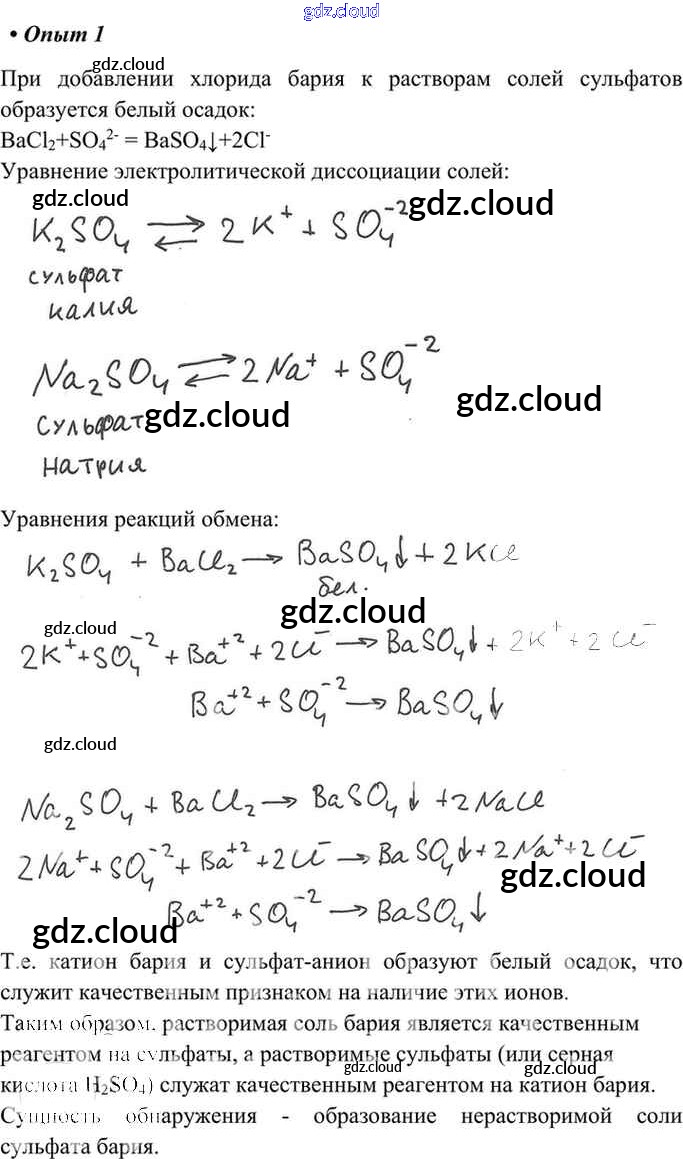 gdz.cloud
• Опыт 1
gdz.cloud
При добавлении хлорида бария к растворам солей сульфатов
образуется белый осадок:
BaCl₂+SO₄²⁻ = BaSO₄↓+2Cl⁻
Уравнение электролитической диссоциации солей:
gdz.cloud
gdz.cloud
K₂SO₄ ⇄ 2K⁺ + SO₄⁻²
сульфат
калия
Na₂SO₄ ⇄ 2Na⁺ + SO₄⁻²
gdz.cloud
сульфат gdz.cloud
натрия
Уравнения реакций обмена:
K₂SO₄ + BaCl₂ → BaSO₄↓ + 2KCl
бел.
gdz.cloud
gdz.cloud
2K⁺+SO₄⁻²+Ba⁺²+2Cl⁻ → BaSO₄↓ + 2K⁺ + 2Cl⁻
Ba⁺² + SO₄⁻² → BaSO₄↓
gdz.cloud
Na₂SO₄ + BaCl₂ → BaSO₄↓ +2NaCl
2Na⁺+SO₄⁻²+Ba⁺²+2Cl⁻ → BaSO₄↓+2Na⁺+2Cl⁻
gdz.cloud
Ba⁺²+SO₄⁻² → BaSO₄↓
gdz.cloud
Т.е. катион бария и сульфат-анион образуют белый осадок, что
служит качественным признаком на наличие этих ионов.
Таким образом, растворимая соль бария является качественным
реагентом на сульфаты, а растворимые сульфаты (или серная
gdz.cloud
gdz.cloud
кислота H₂SO₄) служат качественным реагентом на катион бария.
Сущность обнаружения - образование нерастворимой соли
сульфата бария.